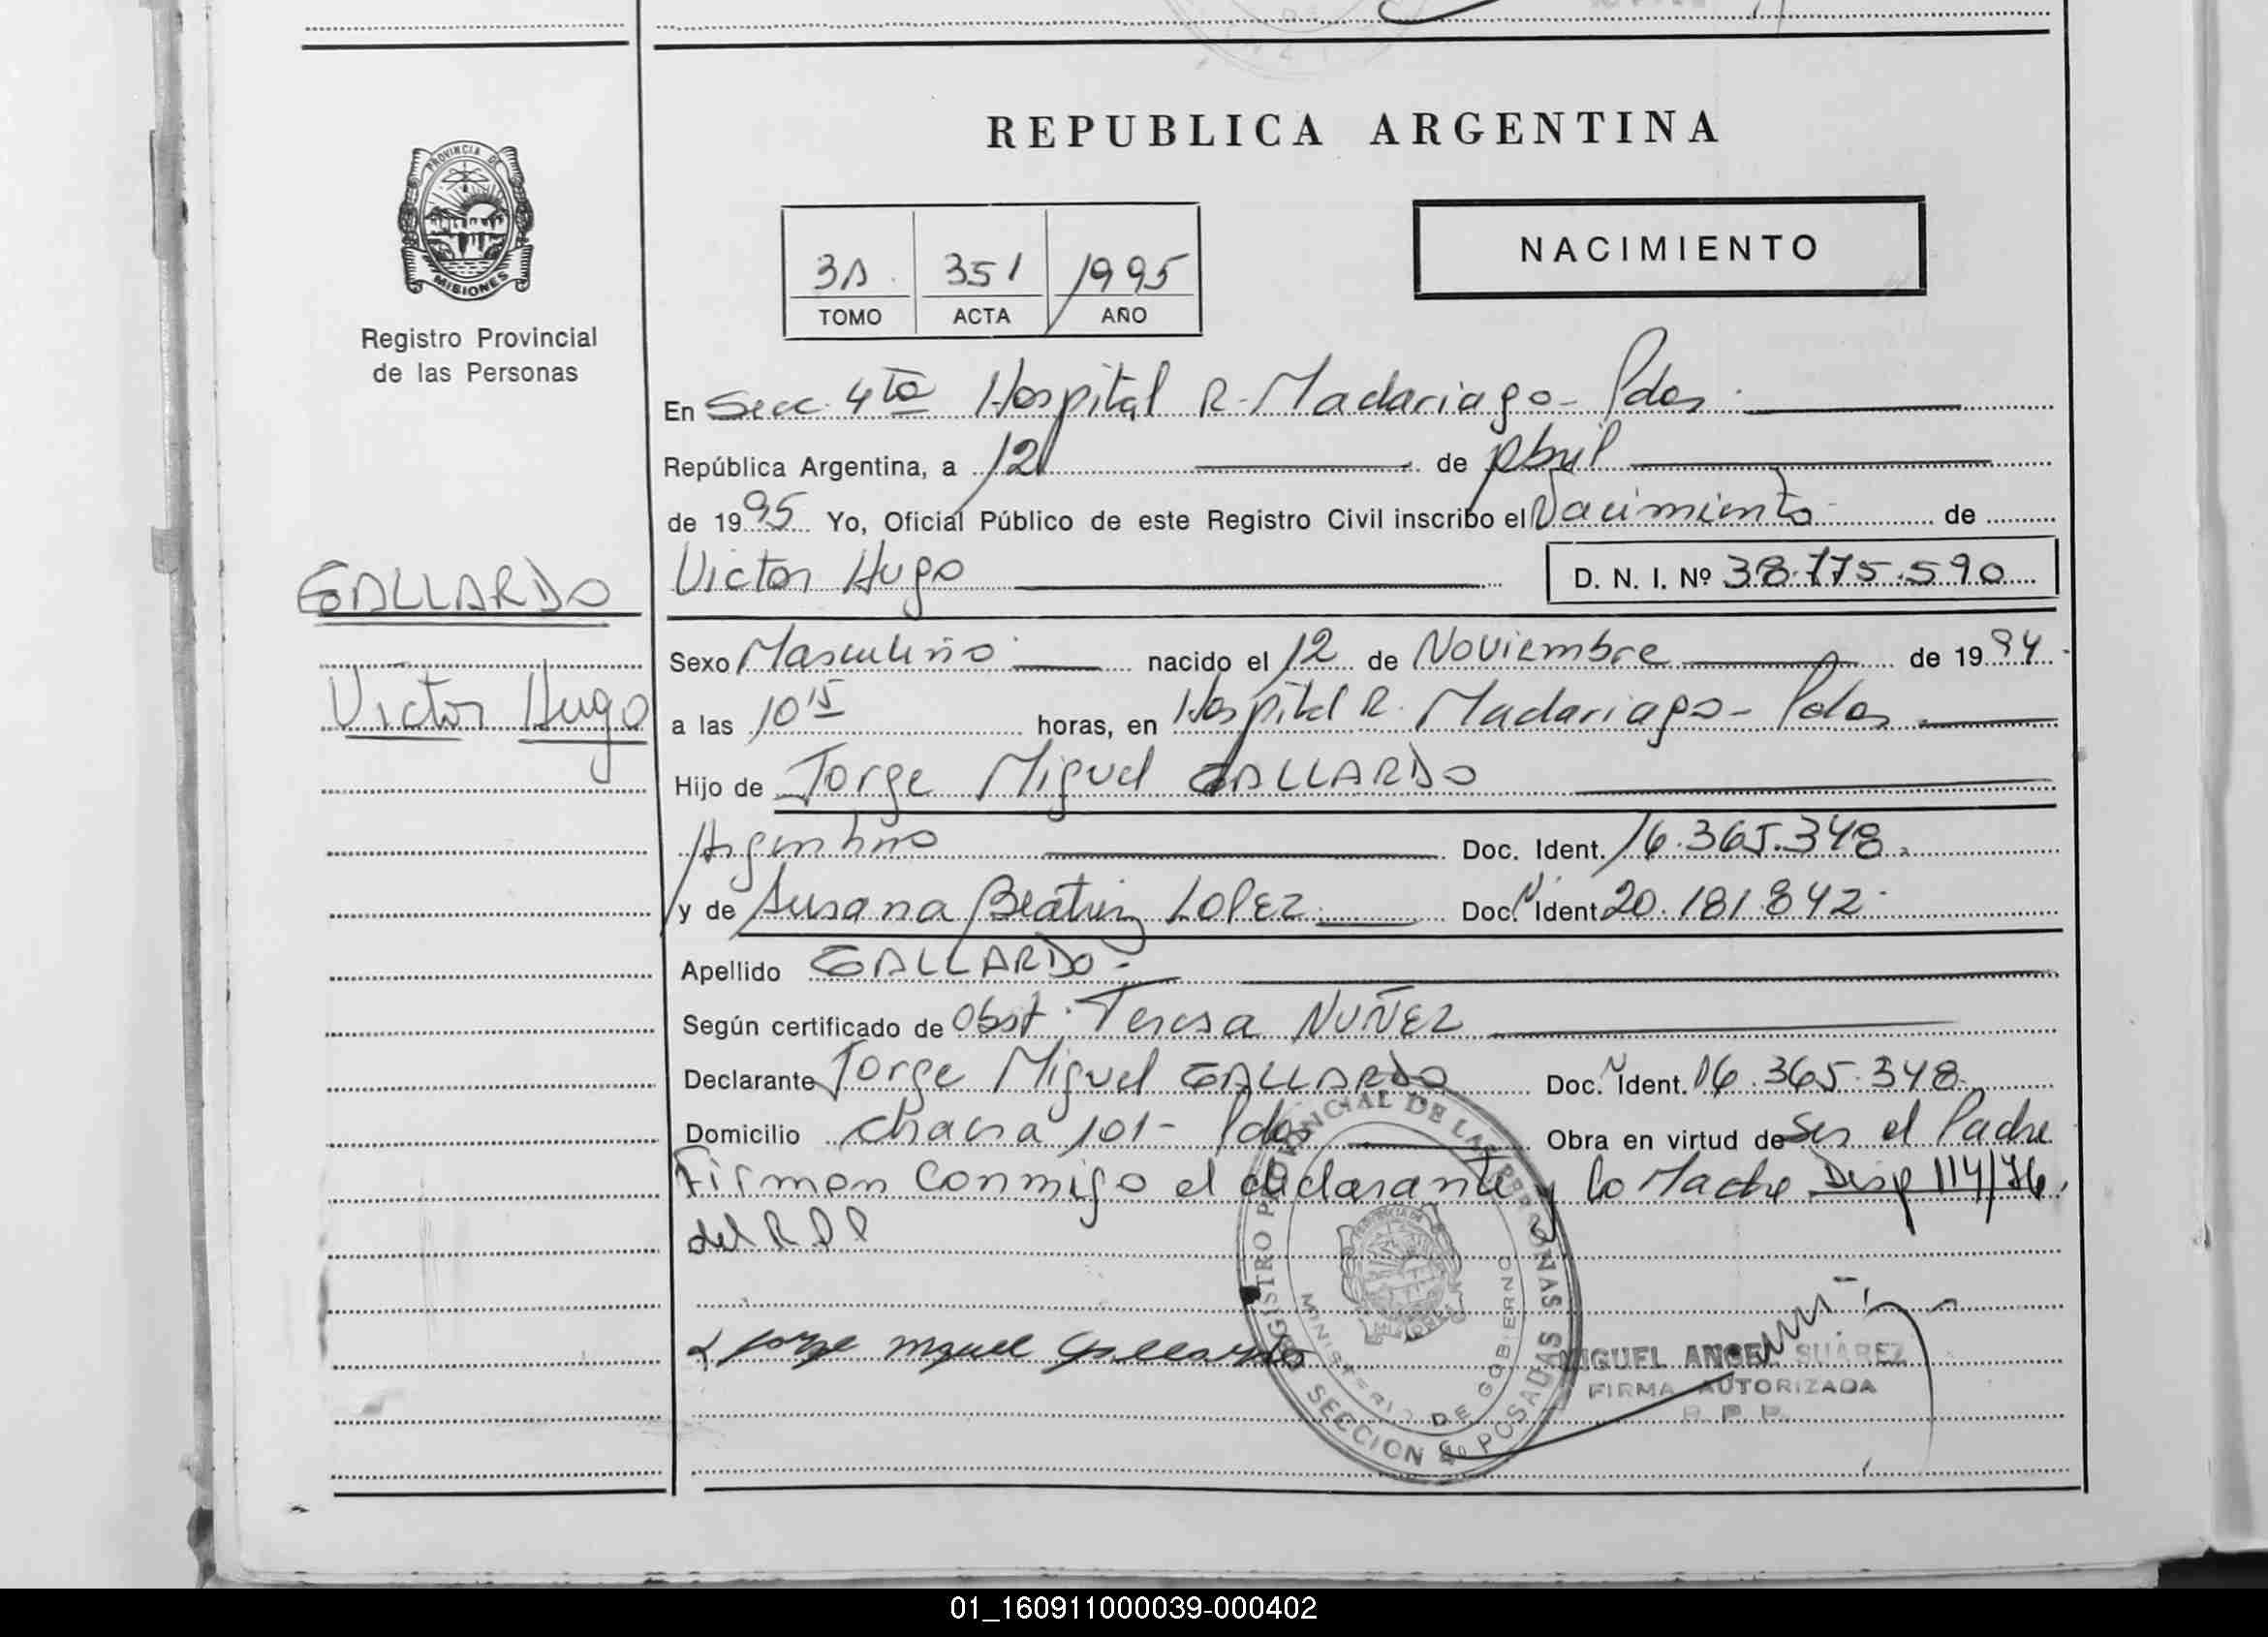 REPUBLICA ARGENTINA
PROVINCIA DE
MISIONES
Registro Provincial
de las Personas
NACIMIENTO
3A 351 1995
TOMO ACTA AÑO
En Secc. 4ta Hospital R. Madariaga - Pdas.
República Argentina, a 12 de Abril
de 1995 Yo, Oficial Público de este Registro Civil inscribo el Nacimiento de
GALLARDO
Victor Hugo D. N. I. Nº 38.775.590
Sexo Masculino nacido el 12 de Noviembre de 1994
Victor Hugo
a las 10 15 horas, en Hospital R. Madariaga - Pdas
Hijo de Jorge Miguel GALLARDO
Argentino Doc. Ident. 16.365.348
y de Susana Beatriz LOPEZ Doc. N. Ident. 20.181.842
Apellido GALLARDO
Según certificado de Obst. Teresa NUÑEZ
Declarante Jorge Miguel GALLARDO Doc. N Ident. 16.365.348
Domicilio Chacra 101 - Pdas Obra en virtud de Ser el Padre
Firman conmigo el declarante y la Madre Disp 114/76.
del RPP
Jorge Miguel Gallardo
MIGUEL ANGEL SUAREZ
FIRMA AUTORIZADA
R. P. P.
REGISTRO PROVINCIAL DE LAS PERSONAS
MINISTERIO DE GOBIERNO
SECCION 4a POSADAS
01_160911000039-000402